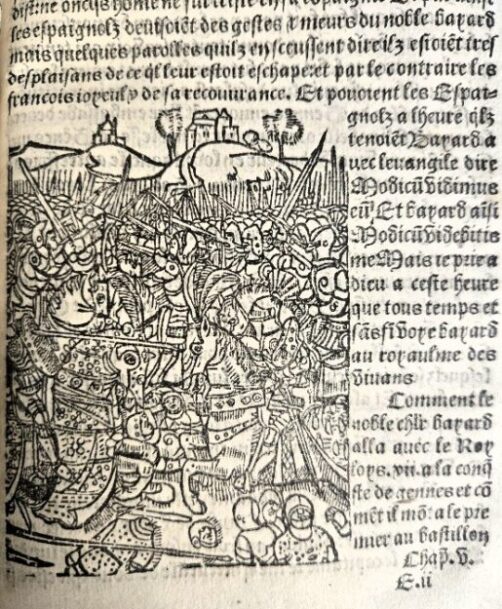 les espaignolz deuisoiēt des gestes & meurs du noble bayard
mais quelques parolles quilz en sceussent dire ilz estoiēt tres
desplaisans de ce q̄l leur estoit eschape: et par le contraire les
francois ioyeulx de sa recouurance. Et pouoient les Espai-
gnolz a lheure q̄lz
tenoiēt Bayard a
uec leuangile dire
Modicū vidimus
eū Et bayard aīsi
Modicū videbitis
me Mais ie prie a
dieu a ceste heure
que tous temps et
sās fī voye bayard
au royaulme des
viuans
Comment le
noble chlr bayard
alla auec le Roy
loys. xii. a la conq̄
ste de gennes et cō
mēt il mōta le pre
mier au bastillon
Chap̄. v.
E.ii